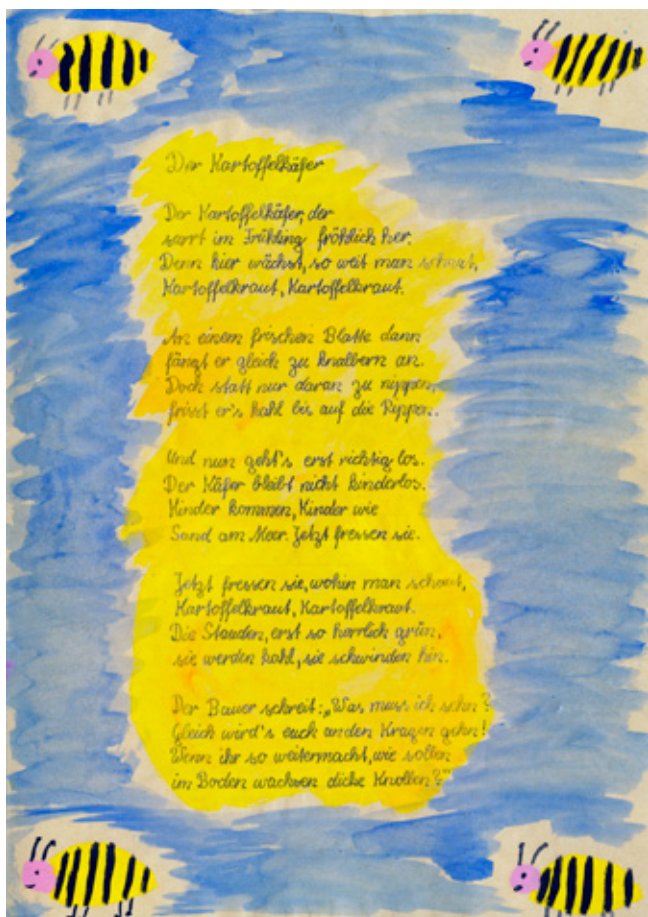 Der Kartoffelkäfer
Der Kartoffelkäfer, der
surrt im Frühling fröhlich her.
Denn hier wächst, so weit man schaut,
Kartoffelkraut, Kartoffelkraut.
An einem frischen Blatte dann
fängt er gleich zu knabbern an.
Doch statt nur daran zu nippen,
frisst er's kahl bis auf die Rippen.
Und nun geht's erst richtig los.
Der Käfer bleibt nicht kinderlos.
Kinder kommen, Kinder wie
Sand am Meer. Jetzt fressen sie.
Jetzt fressen sie, wohin man schaut,
Kartoffelkraut, Kartoffelkraut.
Die Stauden, erst so herrlich grün,
sie werden kahl, sie schwinden hin.
Der Bauer schreit: „Was muss ich sehn?
Gleich wird's euch an den Kragen gehn!
Wenn ihr so weitermacht, wie sollen
im Boden wachsen dicke Knollen?"